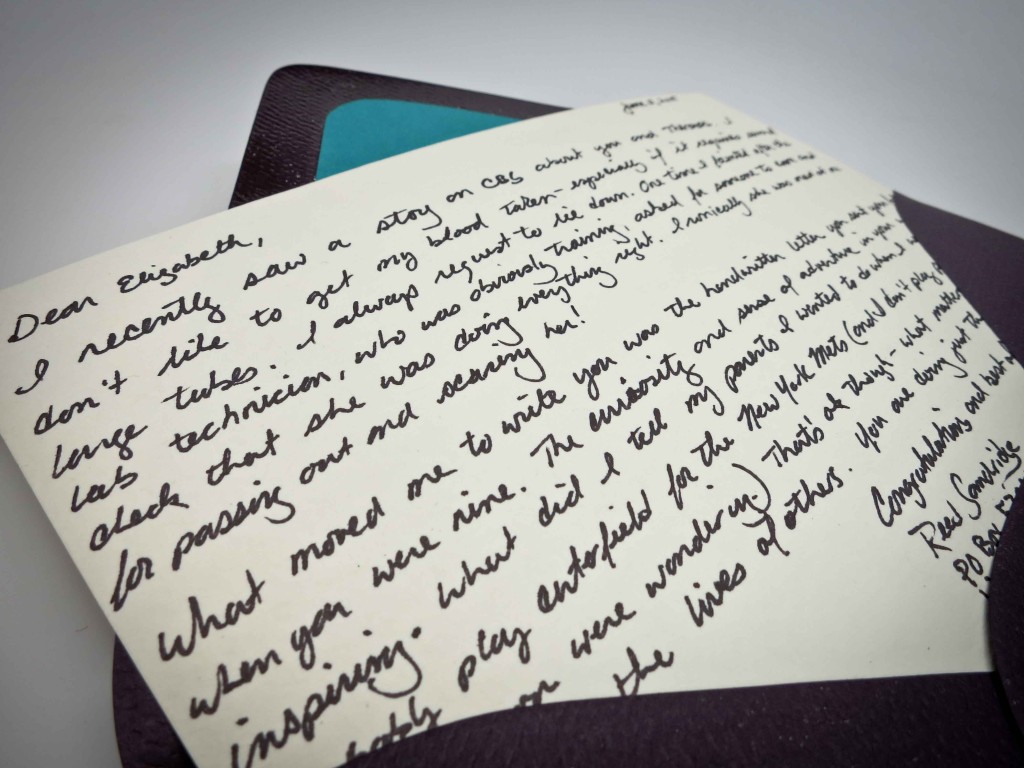 June
Dear Elizabeth,
I recently saw a story on CBS about you and Theranos. I
don't like to get my blood taken - especially if it requires several
large tubes. I always request to lie down. One time I fainted after the
lab technician, who was obviously training, asked for someone to come and
check that she was doing everything right. Ironically she was mad at me
for passing out and scaring her!
What moved me to write you was the handwritten letter you said you
when you were nine. The curiosity and sense of adventure in your
inspiring. What did I tell my parents I wanted to do when I
play centerfield for the New York Mets (and I don't play
were wondering.) That's ok though - what matters
the lives of others. You are doing just
Congratulations and best
Reed Sandridge
PO Box